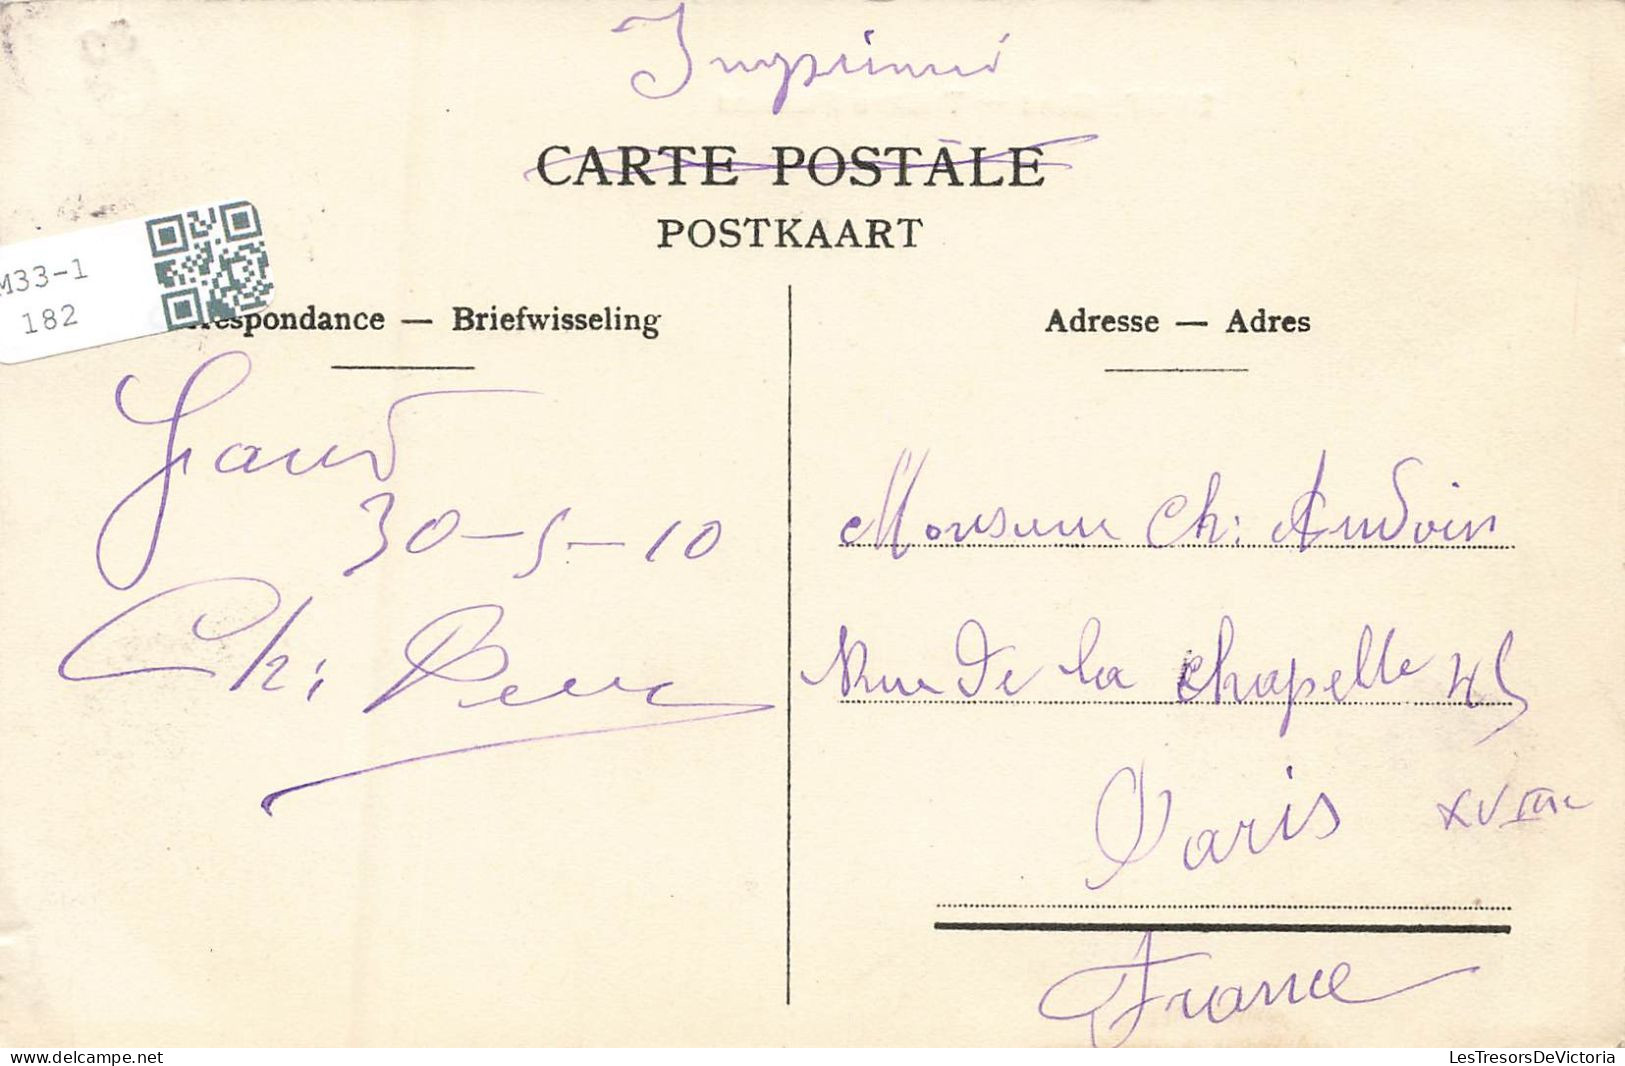 Imprimé
CARTE POSTALE
POSTKAART
M33-1
182
respondance — Briefwisseling
Adresse — Adres
Gand
30-5-10
Ch:
Monsieur Ch: Audoin
Rue de la Chapelle 45
Paris XVIIIe
France
delcampe.net
LesTresorsDeVictoria